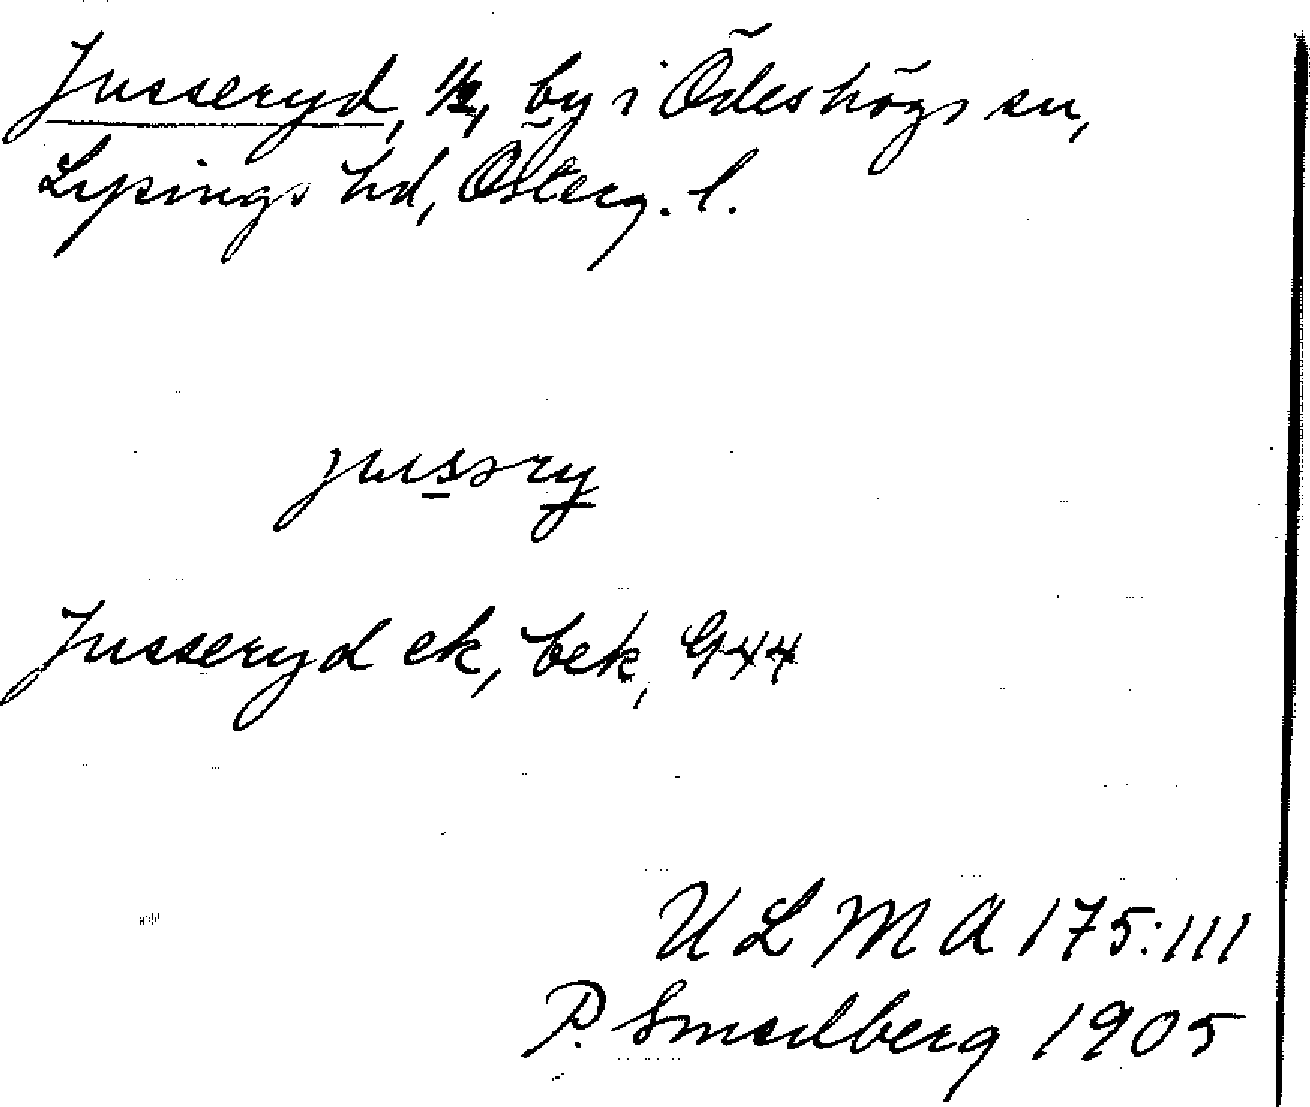 Jusseryd, 1/2, by i Ödeshögs sn,
Lysings hd, Österg. l.
jussry
Jusseryd ek, bek, G44
ULMA 175:111
P. Smedberg 1905